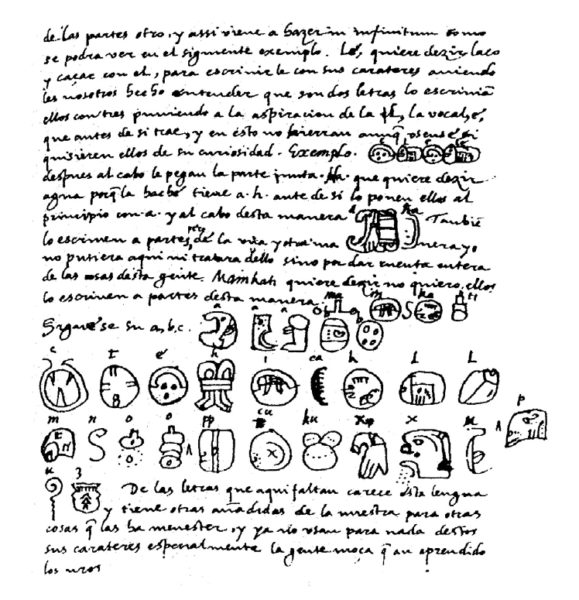 de las partes otro, y assi viene a hazer in infinitum como
se podra ver en el siguiente exemplo. Le, quiere dezir laço
y caçar con el, para escrivirle con sus carateres aviendo
les nosotros hecho entender que son dos letras lo escrivian
ellos con tres puniendo a la aspiracion de la l, la vocal, e,
que antes de si trae, y en esto no hierran aunq̃ usense si
quisieren ellos de su curiosidad. Exemplo.
despues al cabo le pegan la parte junta. Ha. que quiere dezir
agua porq̃ la hache tiene a. h. ante de si lo ponen ellos al
principio con a. y al cabo desta manera a ha Tanbiẽ
lo escriven a partes, pero de la una y otra ma nera yo
no pusiera aqui ni tratara dello sino por dar cuenta entera
de las cosas desta gente. Mainkati quiere dezir no quiero, ellos
lo escriven a partes desta manera. ma i n ka ti
Siguese su a, b, c. a a a b b
c t e h i ca k l L
m n o o pp cu ku x x u p
u z De las letras que aqui faltan carece esta lengua
y tiene otras añadidas de la nuestra para otras
cosas q̃ las ha menester, y ya no usan para nada destos
sus carateres especialmente la gente moça q̃ an aprendido
los nros